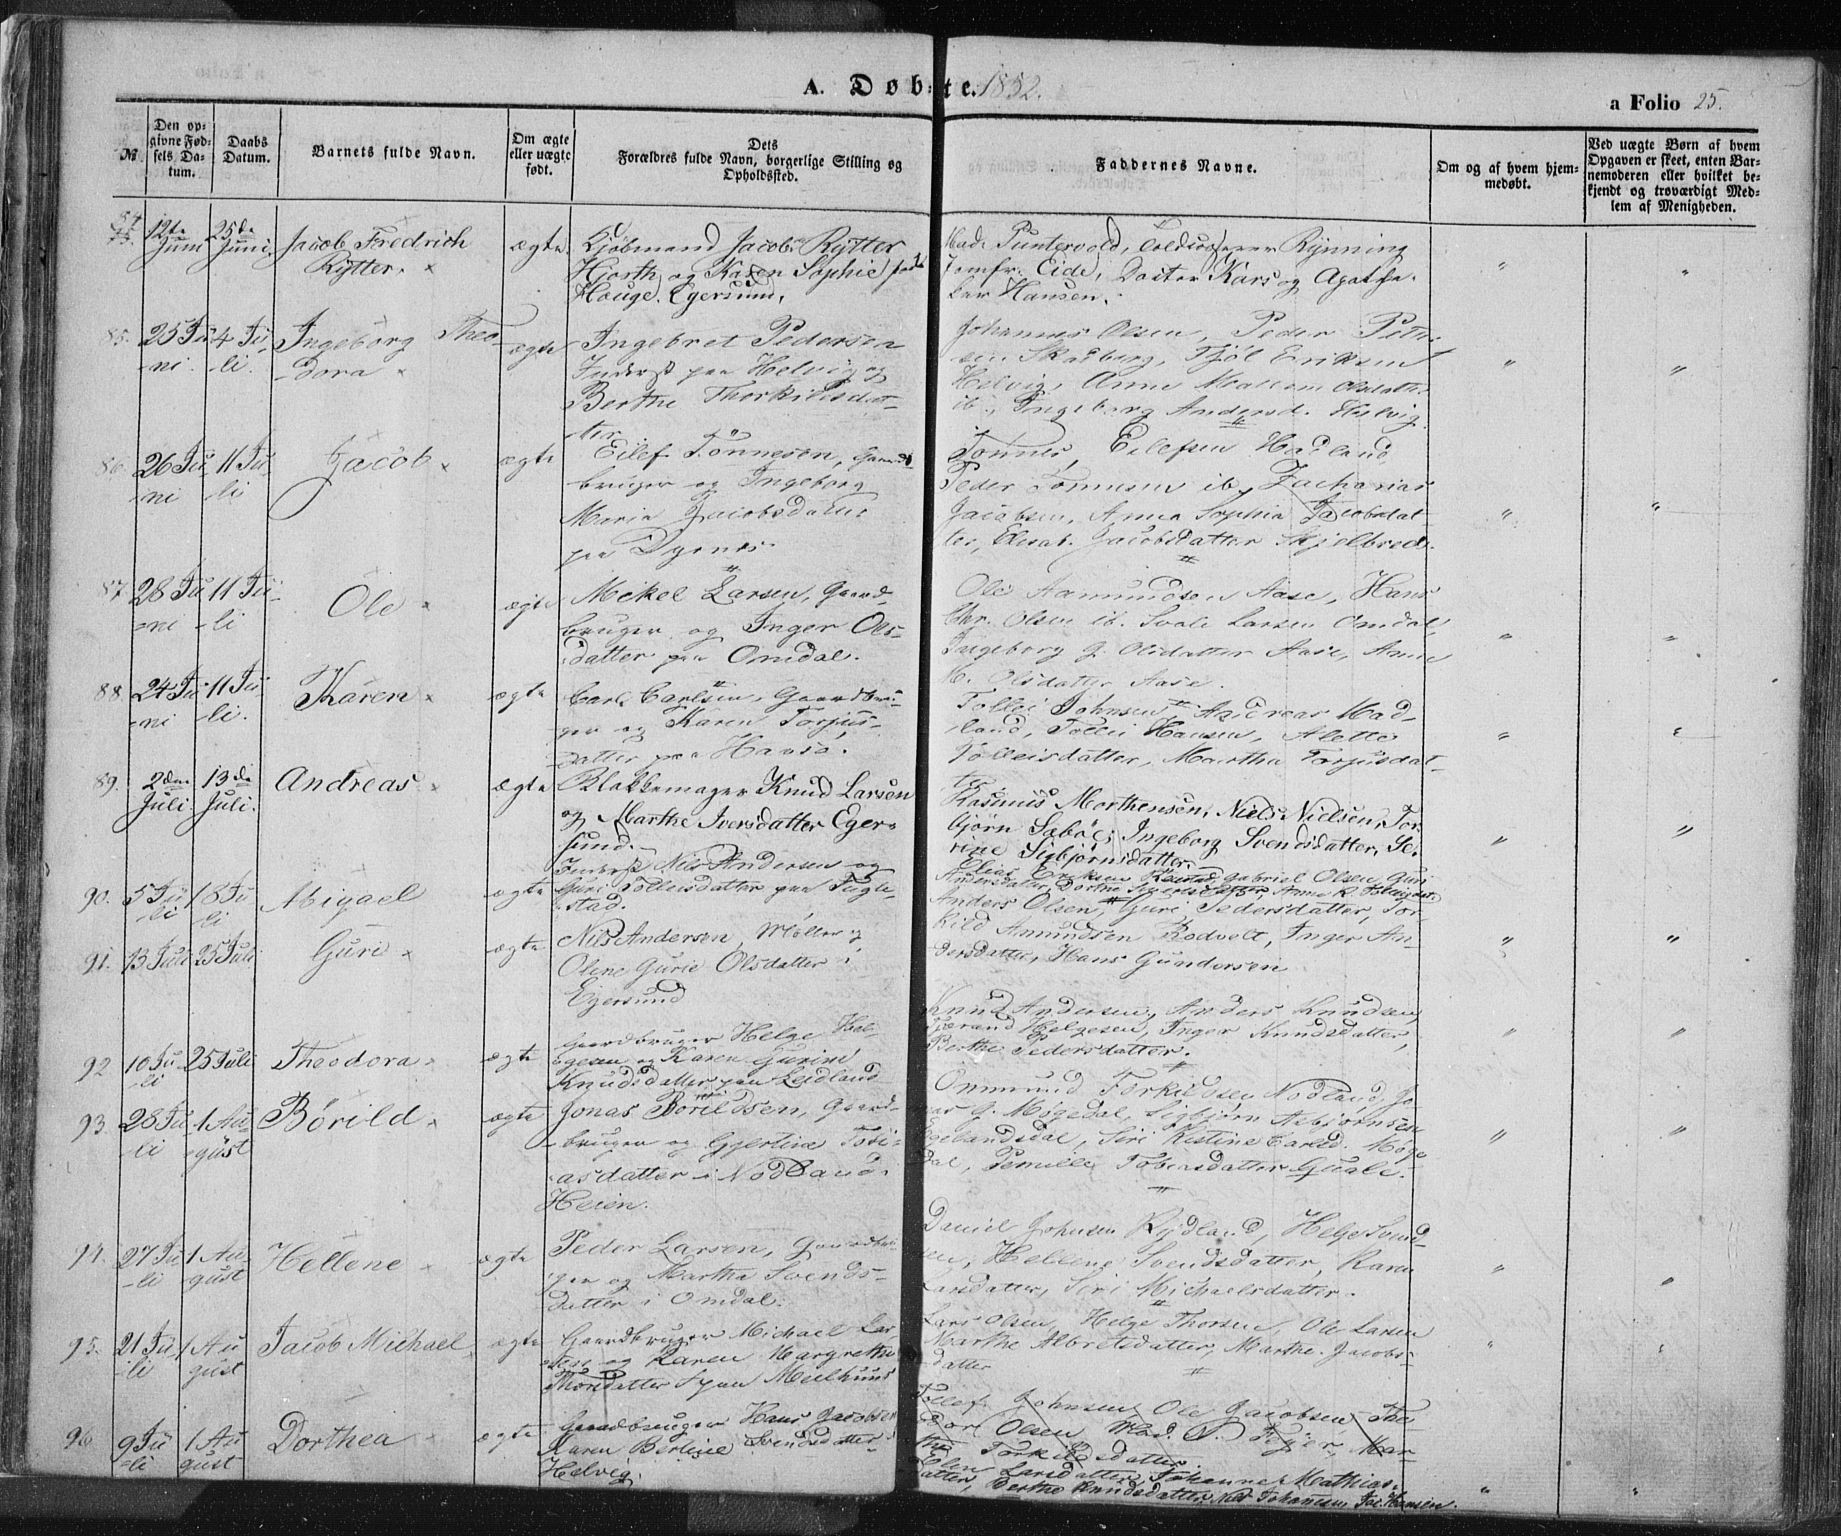 A. Døbte. 1852.
a Folio 25.
№
Den opgivne Fødsels Datum.
Daabs Datum.
Barnets fulde Navn.
Om ægte eller uægte født.
Dets Forældres fulde Navn, borgerlige Stilling og Opholdssted.
Faddernes Navne.
Om og af hvem hjemmedøbt.
Ved uægte Børn af hvem Opgaven er skeet, enten Barnemoderen eller hvilket bekjendt og troværdigt Medlem af Menigheden.
84
12te Juni
25de Juni
Jacob Fredrich
Rytter.
ægte
Kjøbmand Jacob Rytter
Hjorth og Karen Sophie født
Houge. Egersund.
Mad. Puntervold, Toldinspecteur Rynning
Jomfr. Eide, Doctor Kars og Apothe-
ker Hansen.
85.
25 Ju-
ni
4 Ju-
li.
Ingeborg Theo-
dora
ægte
Ingebret Pedersen
Inderst paa Helvig og
Berthe Thorkildsdat-
ter.
Johannes Olsen, Peder Peter-
sen Skadberg, Tjøl Eriksen
Helvig, Anne Olsdatter
ib., Ingeborg Andersd. Helvig
86.
26 Ju-
ni
11 Ju-
li
Jacob
ægte
Eilef Tönnesen, Gaard-
bruger og Ingeborg
Maria Jacobsdatter
paa Dyrnes
Tønnes Eilefsen Hadland
Peder Tønnesen ib., Zacharias
Jacobsen, Anna Sophia Jacobsdat-
ter, Elisab. Jacobsdatter Skjelbred.
87
28 Ju-
ni
11 Ju-
li
Ole
ægte
Mekel Larsen, Gaard-
bruger og Inger Ols-
datter paa Omdal.
Ole Aamundsen Aase, Hans
Chr. Olsen ib. Svale Larsen Omdal,
Ingeborg G. Olsdatter Aase, Anne
M. Olsdatter Aase.
88
24 Ju-
ni
11 Ju-
li.
Karen
ægte
Carl Carlsen, Gaardbru-
ger og Karen Torjus-
datter paa Havsø.
Tollei Johnsen, Andreas Mad-
land, Tollei Hansen, Alette
Tolleisdatter, Martha Torjusdat-
ter
89.
2den
Juli.
13de
Juli.
Andreas
ægte
Blokkemager Knud Larsen
og Marthe Iversdatter Eger-
sund.
Rasmus Morthensen, Niels Nielsen, Tor-
bjørn Sæbøe, Ingeborg Svendsdatter, Se-
rine Sigbjørnsdatter.
90.
5 Ju-
li
18 Ju-
li
Abigael
ægte
Inderst Nils Andersen og
Guri Tolleisdatter paa Fugle-
stad.
Elias Eriksen, Gabriel Olsen, Guri
Andersdatter, Dorthe
91.
13 Juli
25 Juli
Guri
ægte
Nils Andersen, Møller og
Olene Gurie Olsdatter i
Egersund
Anders Olsen, Guri Pedersdatter, Tor-
kild Amundsen Rodvelt, Inger An-
dersdatter, Hans Gundersen
92
10 Ju-
li
25 Juli
Theodora
ægte
Gaardbruger Helge Hel-
gesen og Karen Gurine
Knudsdatter paa Leidland
Knud Andersen, Anders Knudsen
Helgesen, Inger Knudsdatter,
Berthe Pedersdatter.
93.
28 Ju-
li
1 Au-
gust
Börild
ægte
Jonas Börildsen, Gaard-
bruger og Gjertine Tobi-
asdatter i Nodland-
Heien.
Ommund Torkildsen Nodland, Jo-
nas G. Møgedal, Sigbjørn Asbjørnsen
Egelandsdal, Siri Kistine Carlsd. Møge-
dal, Pernille Tobiasdatter Gvale.
94.
27 Ju-
li
1 Au-
gust
Hellene
ægte
Peder Larsen, Gaardbru-
ger og Martha Svends-
datter i Omdal.
Daniel Johnsen Rydland, Helje Svend-
sen, Hellene Svendsdatter, Karen
Larsdatter, Siri Michaelsdatter.
95.
21 Ju-
li
1 Au-
gust
Jacob Michael
ægte
Gaardbruger Michael Lar-
sen og Karen Margrethe
Thorsdatter paa Meelhuus
Lars Olsen, Helge Thorsen, Ole Larsen
Marthe Albretsdatter, Marthe Jacobs-
datter
96
9 Ju-
li
1 Au-
gust
Dorthea
ægte
Gaardbruger Hans Jacobsen
Karen Berline Svendsdatter
Helvig.
Tollef Johnsen, Ole Jacobsen, Theo-
dor Olsen, Mad. P. Fejer, Mar-
the Torkildsdatter
Elen Larsdatter, Johanne Mathias-
datter, Berthe Knudsdatter, Johannesen, Jac. Hansen.